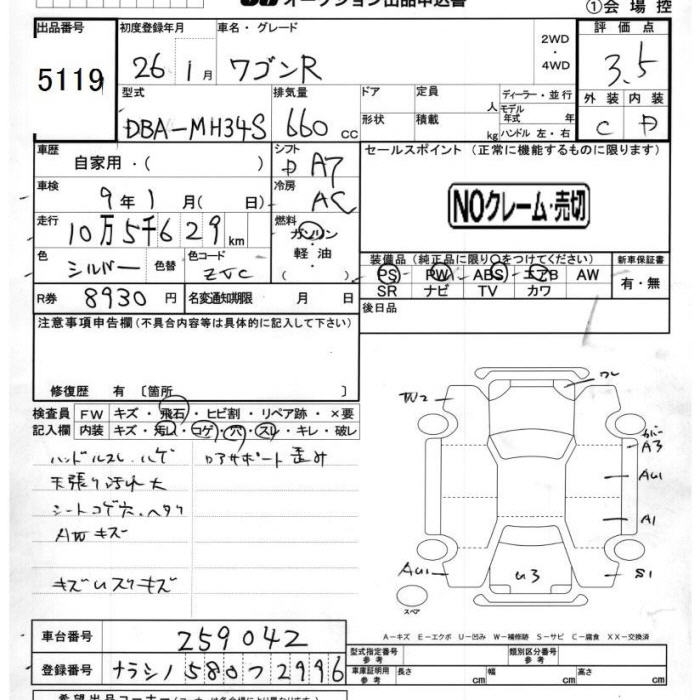 オークション出品申込書
①会場控
出品番号
5119
初度登録年月
26 1月
車名・グレード
ワゴンR
2WD
・
4WD
評価点
3.5
外装 内装
C D
型式
DBA-MH34S
排気量
660 cc
ドア
形状
定員 人
積載 kg
ディーラー・並行
モデル年式 年
ハンドル 左・右
車歴
自家用・( )
シフト
A7
車検
9年 1月( 日)
冷房
AC
走行
10万5千629km
燃料
ガソリン
軽油
( )
色
シルバー
色替
色コード
ZJC
R券
8930円
名変通知期限 月 日
セールスポイント(正常に機能するものに限ります)
NOクレーム・売切
装備品(純正品に限り〇をつけてください)
PS PW ABS エアB AW
SR ナビ TV カワ
新車保証書
有・無
後日品
注意事項申告欄(不具合内容等は具体的に記入して下さい)
修復歴 有〔箇所 〕
検査員 FW キズ・飛石・ヒビ割・リペア跡・×要
記入欄 内装 キズ・汚レ・コゲ・穴・スレ・キレ・破レ
ハンドルスレ、ハゲ
コアサポート歪み
天張り汚れ大
シートコゲ穴、ヘタリ
AW キズ
キズUスリキズ
W2
ワレ
カバー
A3
AU1
A1
AU1
U3
S1
スペア
A-キズ E-エクボ U-凹み W-補修跡 S-サビ C-腐食 XX-交換済
車台番号
259042
登録番号
ナラシノ580つ2996
型式指定番号
参考
類別区分番号
参考
車庫証明用
参考
長さ cm 幅 cm 高さ cm